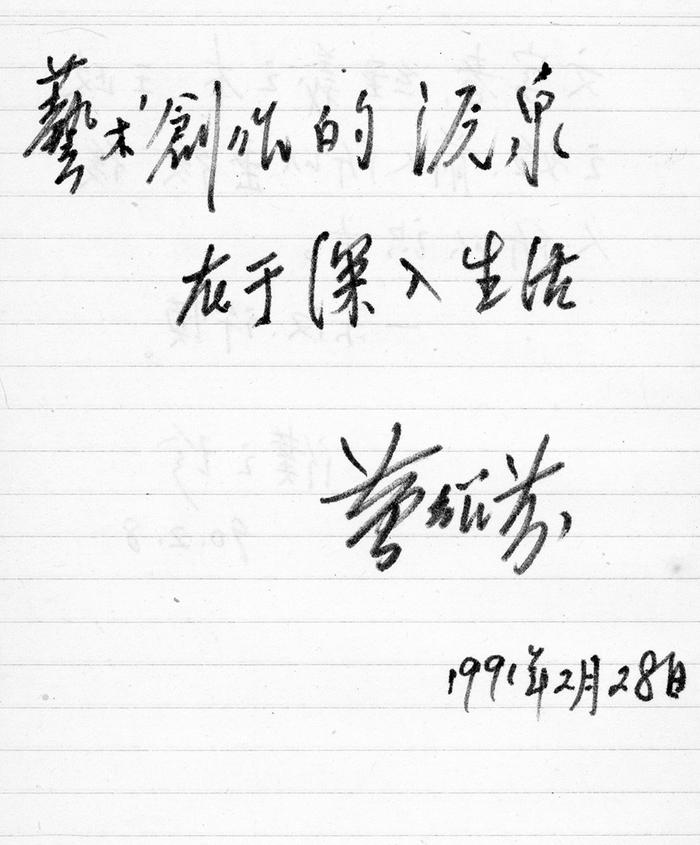 藝术創作的源泉
在于深入生活
黄绍芬
1991年2月28日